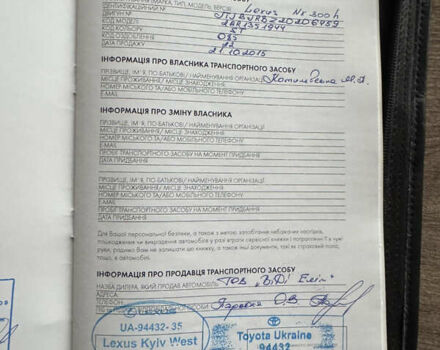 (МАРКА, ТИП, МОДЕЛЬ, ВЕРСІЯ) Lexus NX 300h
ІДЕНТИФІКАЦІЙНИЙ №
ДВИГУН №
КОД МОДЕЛІ
КОД КОЛЬОРУ
КОД ОЗДОБЛЕННЯ
ДАТА ПРОДАЖУ 21.10.2015
ІНФОРМАЦІЯ ПРО ВЛАСНИКА ТРАНСПОРТНОГО ЗАСОБУ
ПРІЗВИЩЕ, ІМ 'Я, ПО-БАТЬКОВІ/ НАЙМЕНУВАННЯ ОРГАНІЗАЦІЇ
МІСЦЕ ПРОЖИВАННЯ/ МІСЦЕ ЗНАХОДЖЕННЯ
НОМЕР МІСЬКОГО ТА/АБО МОБІЛЬНОГО ТЕЛЕФОНУ
E-MAIL
ІНФОРМАЦІЯ ПРО ЗМІНУ ВЛАСНИКА
ПРІЗВИЩЕ, ІМ 'Я, ПО-БАТЬКОВІ/ НАЙМЕНУВАННЯ ОРГАНІЗАЦІЇ
МІСЦЕ ПРОЖИВАННЯ/ МІСЦЕ ЗНАХОДЖЕННЯ
НОМЕР МІСЬКОГО ТА/АБО МОБІЛЬНОГО ТЕЛЕФОНУ
E-MAIL
ПРОБІГ ТРАНСПОРТНОГО ЗАСОБУ НА МОМЕНТ ПРИДБАННЯ
ДАТА ПРИДБАННЯ
ПРІЗВИЩЕ, ІМ 'Я, ПО-БАТЬКОВІ/ НАЙМЕНУВАННЯ ОРГАНІЗАЦІЇ
МІСЦЕ ПРОЖИВАННЯ/ МІСЦЕ ЗНАХОДЖЕННЯ
НОМЕР МІСЬКОГО ТА/АБО МОБІЛЬНОГО ТЕЛЕФОНУ
E-MAIL
ПРОБІГ ТРАНСПОРТНОГО ЗАСОБУ НА МОМЕНТ ПРИДБАННЯ
ДАТА ПРИДБАННЯ
Для Вашої персональної безпеки, а також з метою запобігання небажаних наслідків,
пошкодження чи викрадення автомобіля у разі втрати сервісної книжки і потрапляння її в чужі
руки, радимо Вам не залишати цю книжку, а також інші документи, такі як страховий поліс,
тощо, в автомобілі.
ІНФОРМАЦІЯ ПРО ПРОДАВЦЯ ТРАНСПОРТНОГО ЗАСОБУ
НАЗВА ДИЛЕРА, ЯКИЙ ПРОДАВ АВТОМОБІЛЬ ТОВ
АДРЕСА:
ТЕЛЕФОН:
UA-94432-35
Lexus Kyiv West
Toyota Ukraine
94432